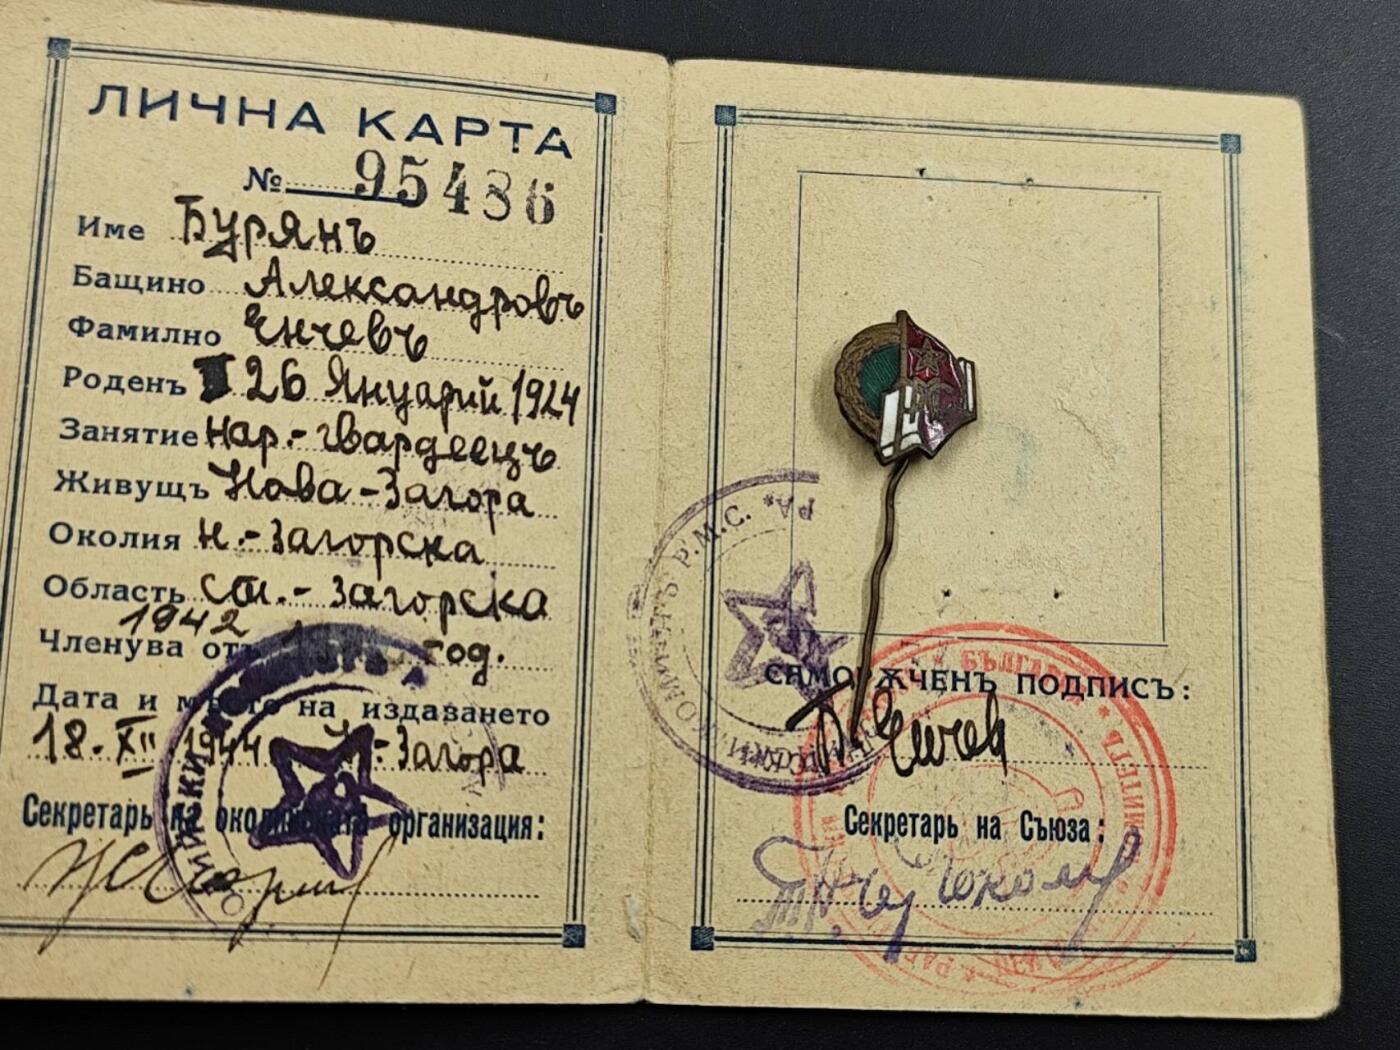 ЛИЧНА КАРТА
№ 95486
Име Бурянъ
Бащино Александровъ
Фамилно Енчевъ
Роденъ 26 Януарий 1924
Занятие нар.-гвардеецъ
Живущъ Нова-Загора
Околия Н.-Загорска
Область Ст.-Загорска
1942
Членува отъ год.
Дата и място на издаването
18.XII.1944 Н.-Загора
Секретарь на околийската организация:
КОМИТЕТЪ Р.М.С. * РА
САМОРѪЧЕНЪ ПОДПИСЪ:
Б Енчев
Секретарь на Съюза: